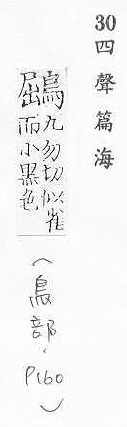 30四聲篇海
鶌九勿切似雀
而小黑色
(鳥部.P160)